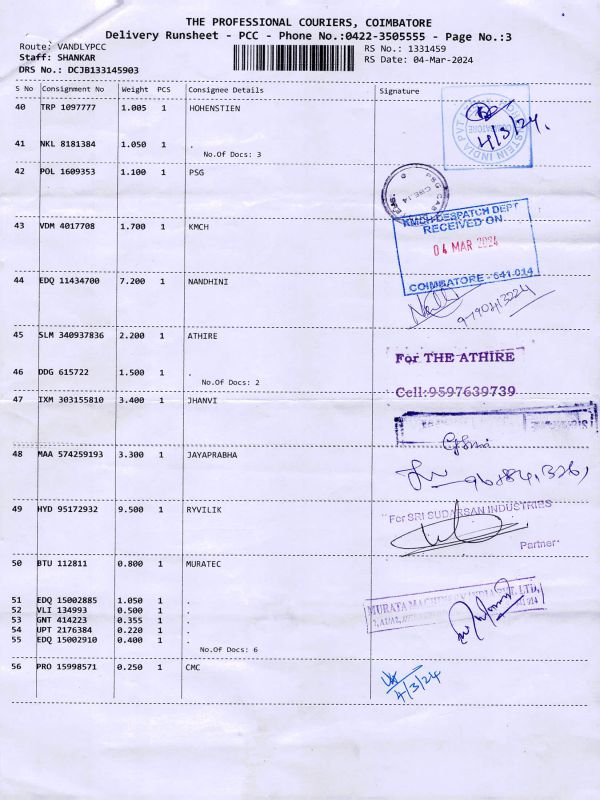 THE PROFESSIONAL COURIERS, COIMBATORE
Delivery Runsheet - PCC - Phone No.:0422-3505555 - Page No.:3
Route: VANDLYPCC
RS No.: 1331459
Staff: SHANKAR
RS Date: 04-Mar-2024
DRS No.: DCJB133145903
S No Consignment No Weight PCS Consignee Details Signature
40 TRP 1097777 1.005 1 HOHENSTIEN
4/3/24.
41 NKL 8181384 1.050 1 .
No.Of Docs: 3
42 POL 1609353 1.100 1 PSG
43 VDM 4017708 1.700 1 KMCH
KMCH DESPATCH DEPT
RECEIVED ON
04 MAR 2024
COIMBATORE - 641 014
44 EDQ 11434700 7.200 1 NANDHINI
45 SLM 340937836 2.200 1 ATHIRE
For THE ATHIRE
46 DDG 615722 1.500 1 .
No.Of Docs: 2
Cell:9597639739
47 IXM 303155810 3.400 1 JHANVI
48 MAA 574259193 3.300 1 JAYAPRABHA
49 HYD 95172932 9.500 1 RYVILIK
For SRI SUDARSAN INDUSTRIES
Partner
50 BTU 112811 0.800 1 MURATEC
51 EDQ 15002885 1.050 1 .
52 VLI 134993 0.500 1 .
53 GNT 414223 0.355 1 .
54 UPT 2176384 0.220 1 .
55 EDQ 15002910 0.400 1 .
No.Of Docs: 6
MURATA MACHINERY INDIA PVT. LTD,
56 PRO 15998571 0.250 1 CMC
4/3/24